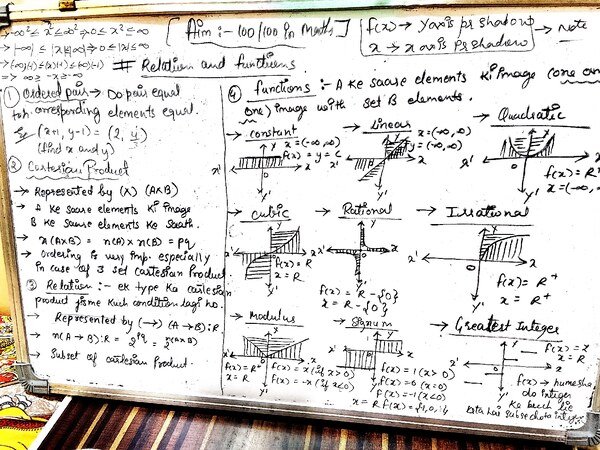 -∞² ≤ x² ≤ ∞² ⇒ 0 ≤ x² ≤ ∞
→ |-∞| ≤ |x| ≤ |∞| ⇒ 0 ≤ |x| ≤ ∞
⇒ ∞ ≥ -x ≥ -∞
[Aim :- 100/100 in Maths]
f(x) → Y axis pr shadow
x → x axis Pr shadow
→ Note
# Relation and functions
① Ordered pair → Do pair equal
toh corresponding elements equal.
Eg (x+1, y-1) = (2, 4/3)
(find x and y)
② Cartesian Product
→ Represented by (X) (AXB)
→ A Ke saare elements Ki image
B Ke saare elements Ke saath.
→ n(AXB) = n(A) x n(B) = pq
→ Ordering is very imp. especially
in case of 3 set cartesian Product
③ Relation :- ek type Ka cartesian
product jisme Kuch condition lagi ho.
→ Represented by (→) (A→B):R
→ n(A→B):R = 2^pq = 2^n(AXB)
→ Subset of cartesian Product.
④ functions :- A Ke saare elements Ki image (one and
one) image with set B elements.
→ constant
x = (-∞, ∞)
f(x) = y = C
→ Linear
x = (-∞, ∞)
y = (-∞, ∞)
→ Quadratic
f(x) = R⁺
x = (-∞, ∞)
→ Cubic
f(x) = R
x = R
→ Rational
f(x) = R - {0}
x = R - {0}
→ Irrational
f(x) = R⁺
x = R⁺
→ Modulus
f(x) = R⁺
x = R
f(x) = x (if x > 0)
f(x) = -x (if x < 0)
→ Signum
f(x) = 1 (x > 0)
f(x) = 0 (x = 0)
f(x) = -1 (x < 0)
x = R
→ Greatest Integer
x = R
f(x) → humesha
do integer
Ke beech
hai sabse chota integer